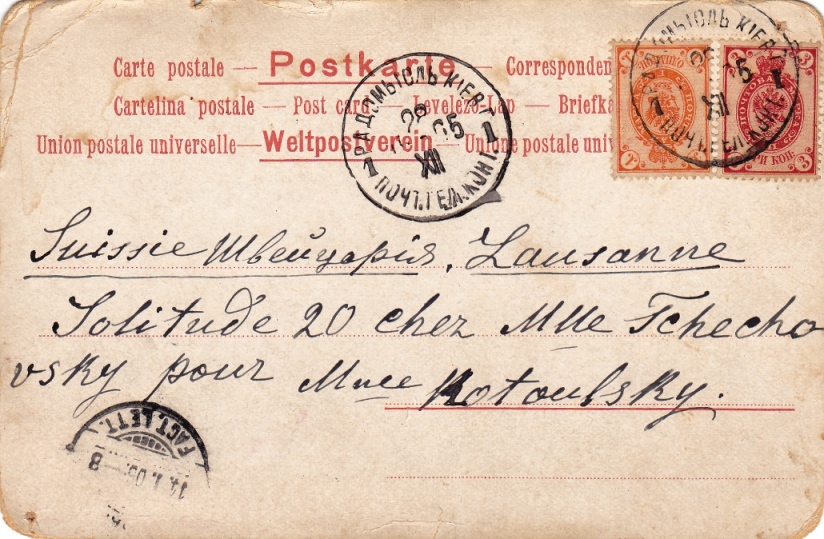 Carte postale — Postkarte — Corresponden
Cartolina postale — Post card — Levelező-Lap — Briefka
Union postale universelle — Weltpostverein — Unione postale univ
РАДОМЫСЛЬ КІЕВ. Г.
28
XII
1 ПОЧТ. ТЕЛ. КОН. 1
1
3
РИ КОП. 3
Suissie Швейцарія, Lausanne
Solitude 20 chez Mlle Tchecho
vsky pour Mlle Kotoubsky.
FACT. LETT.